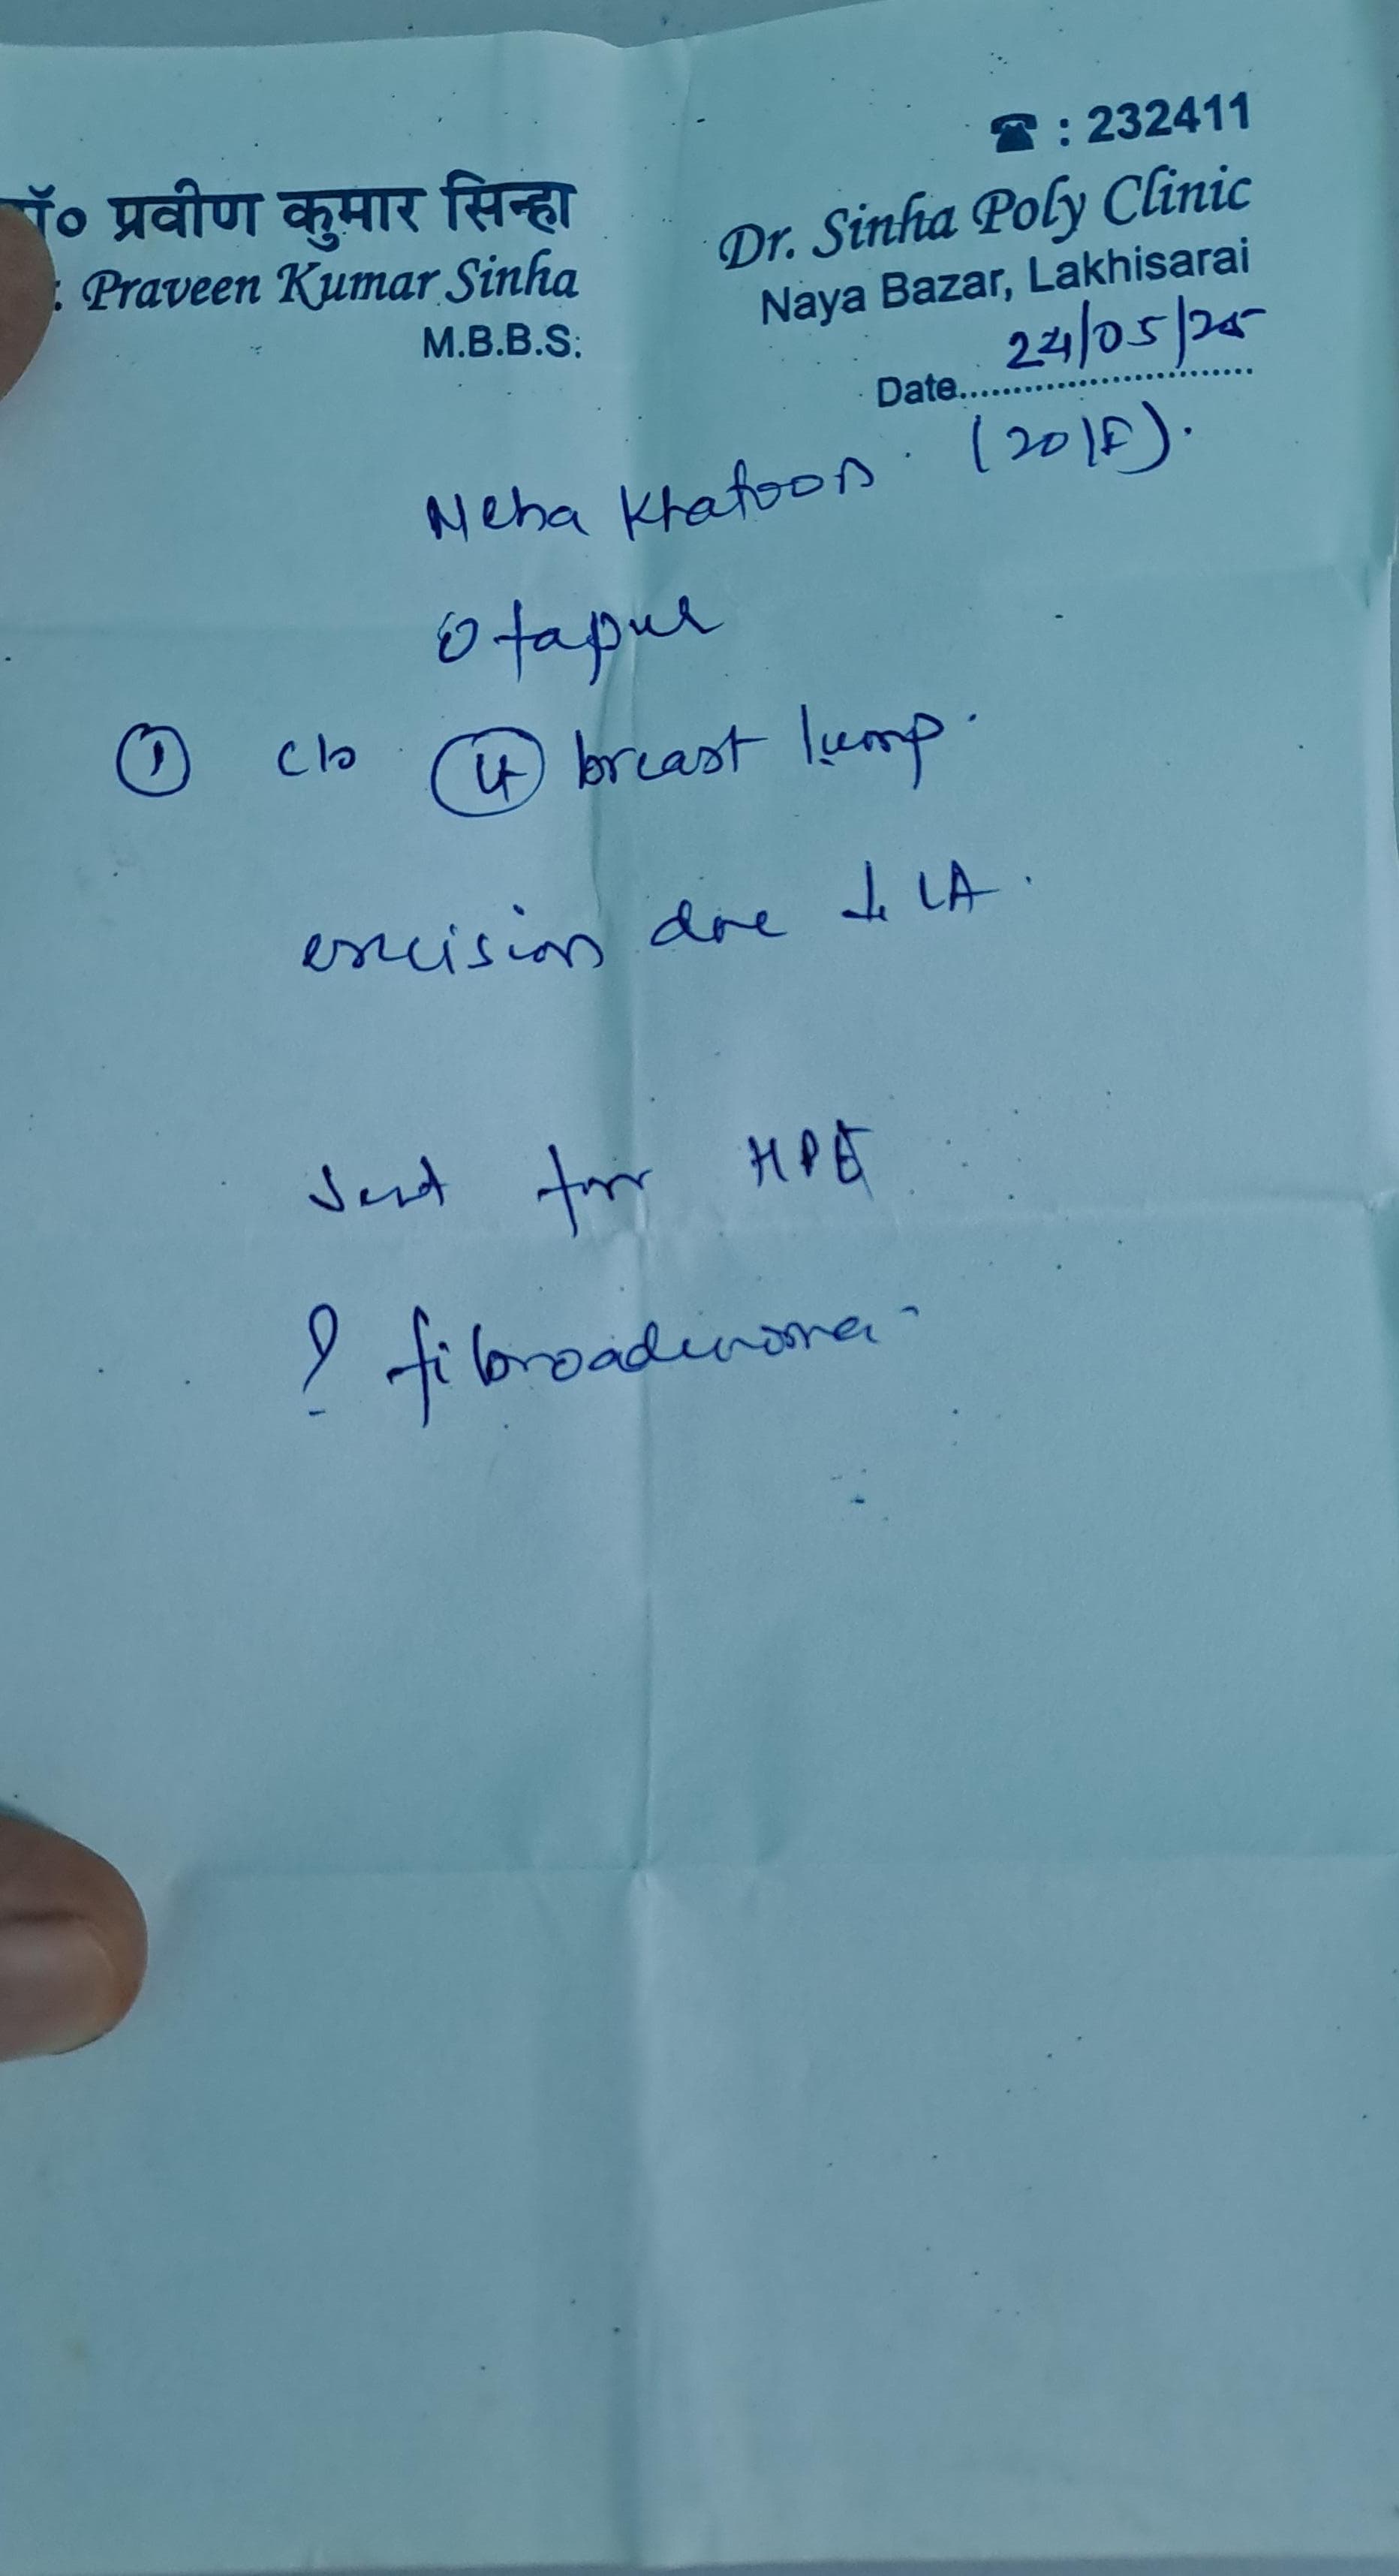 ☎ : 232411
डॉ० प्रवीण कुमार सिन्हा
Dr. Sinha Poly Clinic
: Praveen Kumar Sinha
Naya Bazar, Lakhisarai
M.B.B.S.
Date 24/05/25
Neha Khatoon (20/F).
① c/o Lt breast lump.
excision done LA.
Sent for HPE
? fibroadenoma